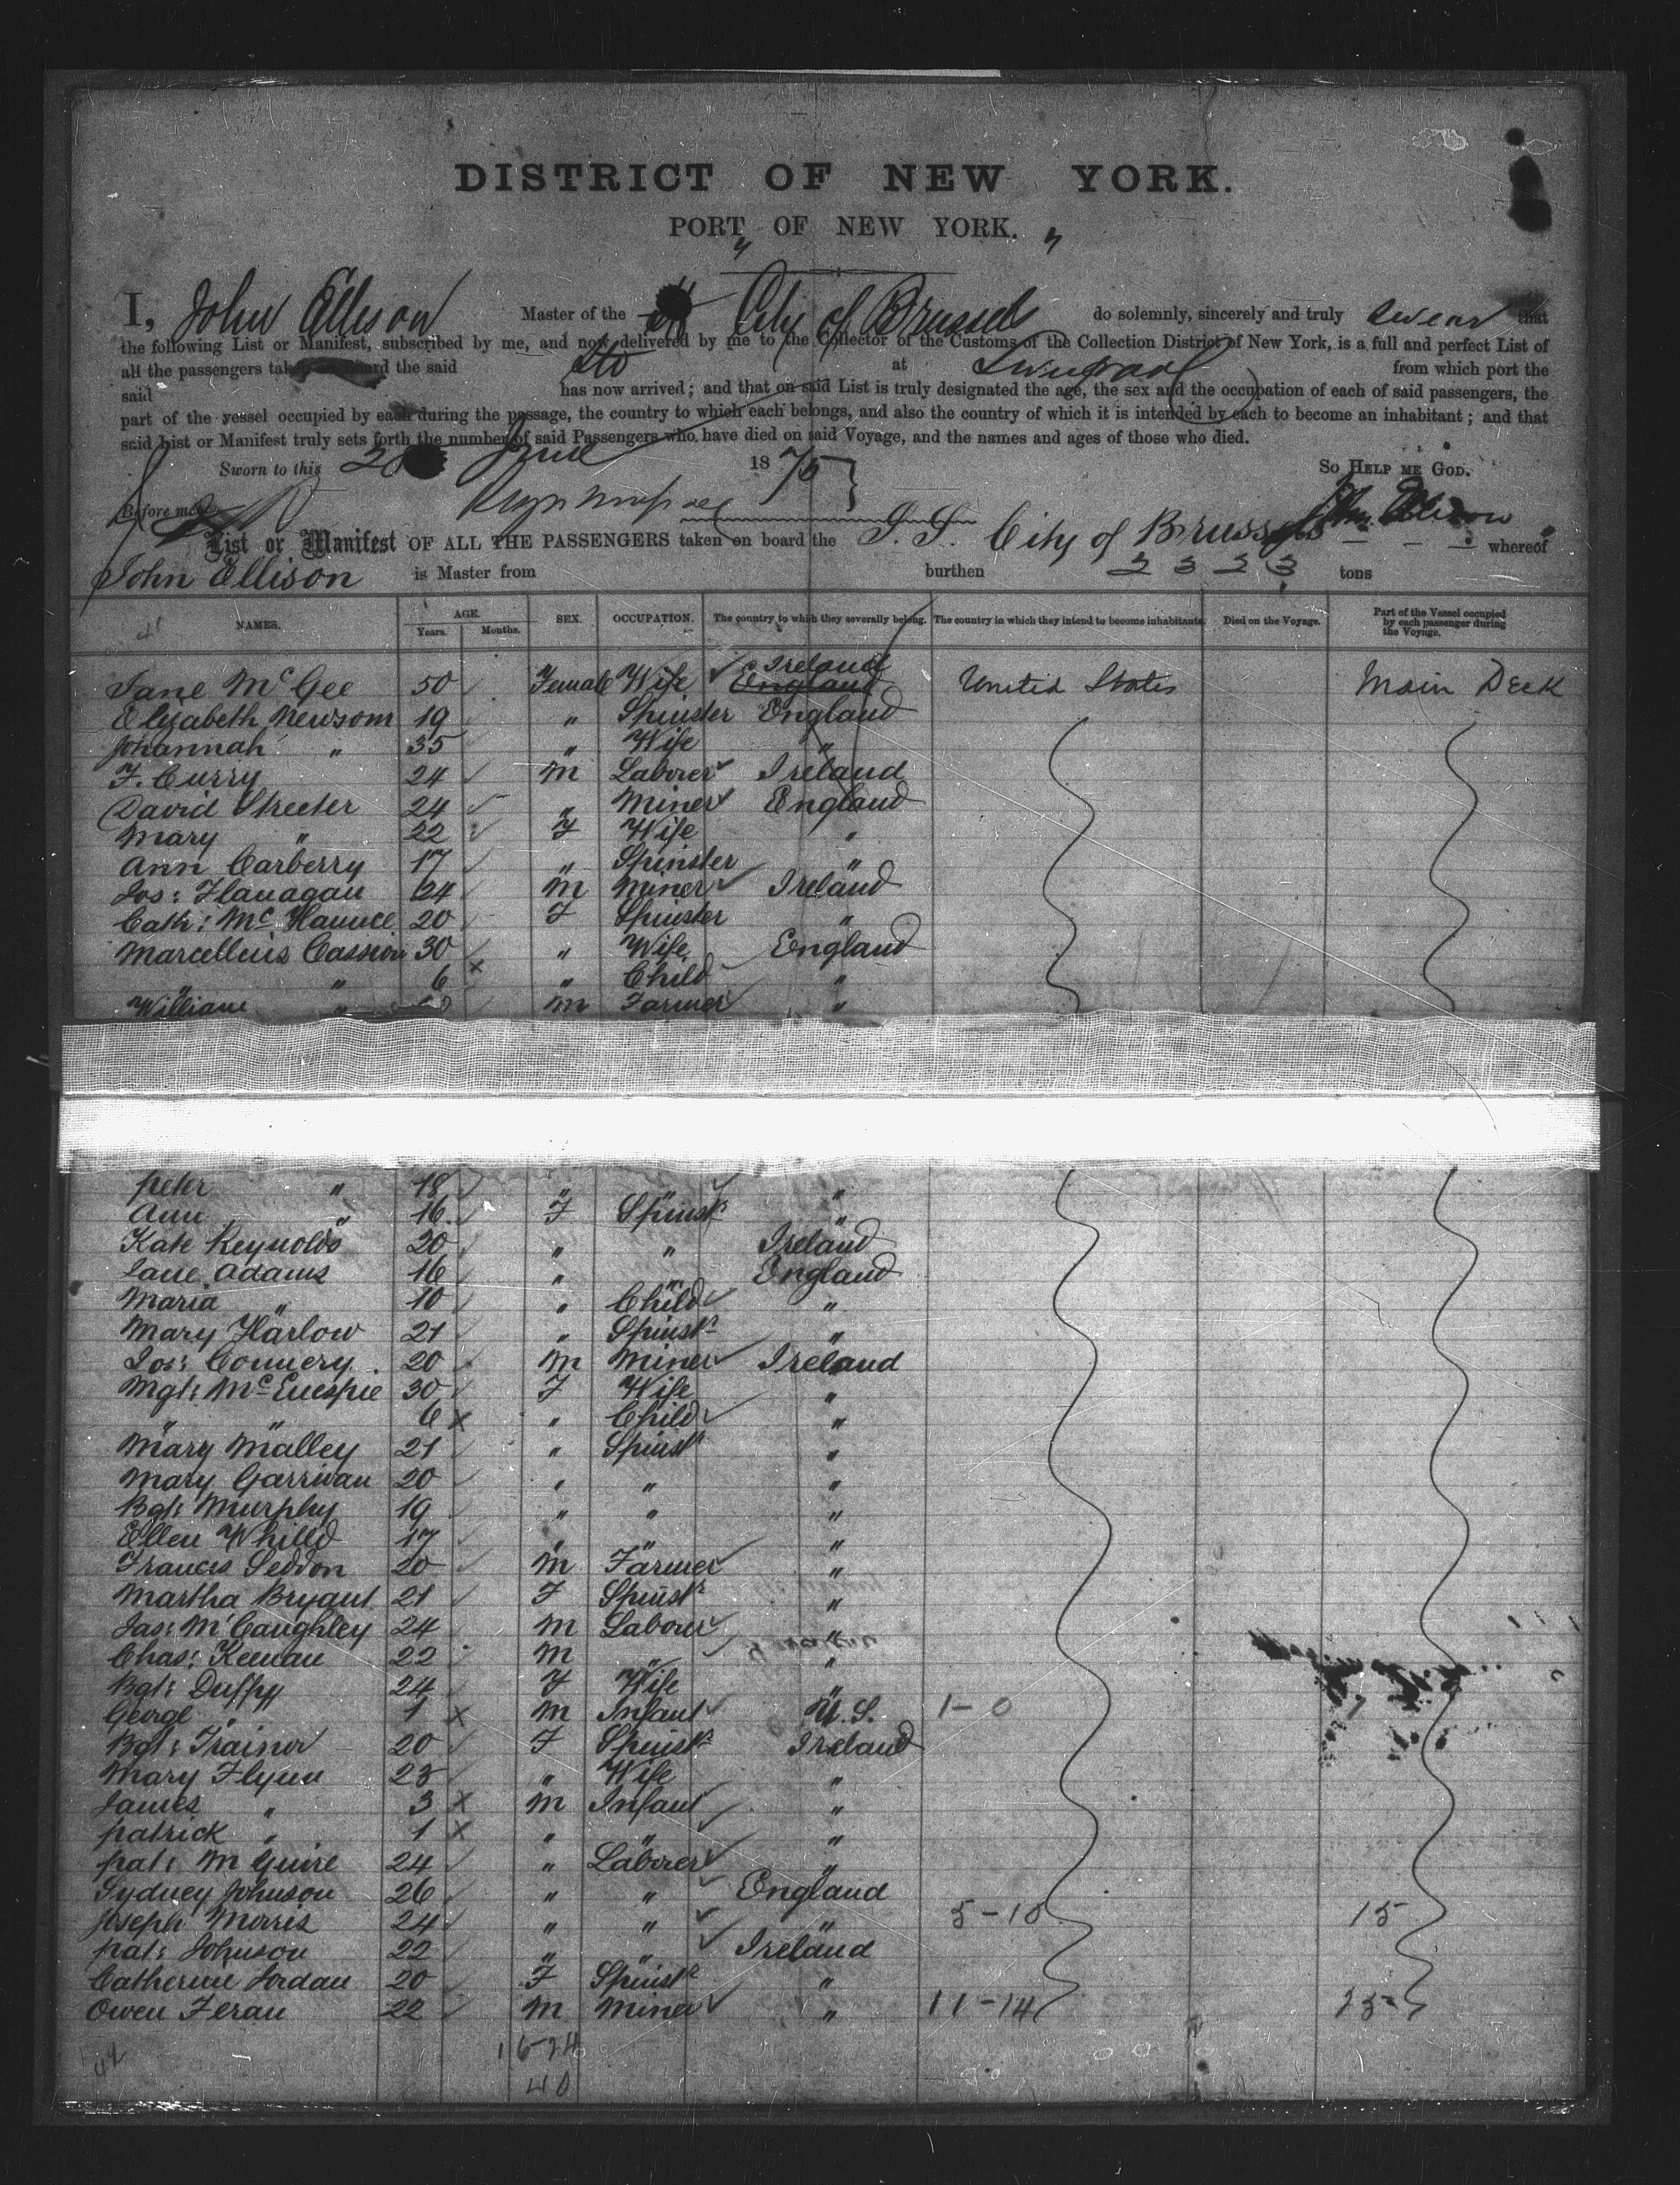 DISTRICT OF NEW YORK.
PORT OF NEW YORK.
I, John Ellison Master of the City of Brussels do solemnly, sincerely and truly swear that
the following List or Manifest, subscribed by me, and now delivered by me to the Collector of the Customs of the Collection District of New York, is a full and perfect List of
all the passengers taken on board the said at Liverpool from which port the
said has now arrived; and that on said List is truly designated the age, the sex and the occupation of each of said passengers, the
part of the vessel occupied by each during the passage, the country to which each belongs, and also the country of which it is intended by each to become an inhabitant; and that
said List or Manifest truly sets forth the number of said Passengers who have died on said Voyage, and the names and ages of those who died.
Sworn to this 28 June 1875 So Help me God.
Before me John Ellison
List or Manifest OF ALL THE PASSENGERS taken on board the S.S. City of Brussels whereof
John Ellison is Master from burthen 2323 tons
NAMES. AGE. Years. Months. SEX. OCCUPATION. The country to which they severally belong. The country in which they intend to become inhabitants. Died on the Voyage. Part of the Vessel occupied by each passenger during the Voyage.
Jane McGee 50 Female Wife Ireland England United States Main Deck
Elizabeth Newsom 19 " Spinster England
Johannah " 35 " Wife "
F. Curry 24 M Laborer Ireland
David Streeter 24 " Miner England
Mary " 22 F Wife "
Ann Carberry 17 " Spinster "
Jos: Flanagan 24 M Miner Ireland
Cath: Mc 20 F Spinster "
Marcellius Cassion 30 " Wife England
" " 6 x " Child "
William " M Farmer "
peter " 18 " " "
Ann " 16 F Spinstr "
Kate Reynolds 20 " " Ireland
Jane Adams 16 " " England
Maria " 10 " Child "
Mary Harlow 21 " Spinstr "
Jos: Connery 20 M Miner Ireland
Mgt: McEnespie 30 F Wife "
" " 6 x " Child "
Mary Malley 21 " Spinstr "
Mary Garrivan 20 " " "
Bgt: Murphy 19 " " "
Ellen Whilld 17 " " "
Francis Seddon 20 M Farmer "
Martha Bryant 21 F Spinstr "
Jas: McCaughley 24 M Laborer "
Chas: Keenan 22 M " "
Bgt: Duffy 24 F Wife "
George " 1 x M Infant U.S. 1-0
Bgt: Trainor 20 F Spinstr Ireland
Mary Flynn 23 " Wife "
James " 3 x M Infant "
patrick " 1 x " " "
pat: McGuire 24 " Laborer "
Sydney Johnson 26 " " England
Joseph Morris 24 " " " 5-10 15
pat: Johnson 22 " " Ireland
Catherine Jordan 20 F Spinstr "
Owen Feran 22 M Miner " 11-14 25
16-24
40